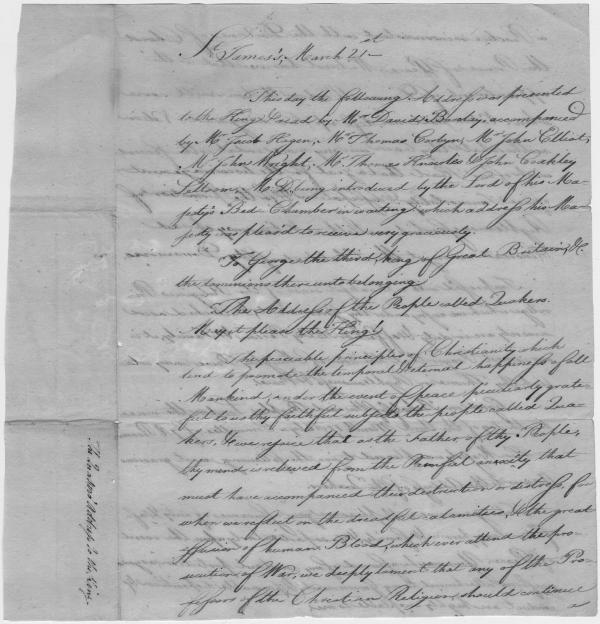 St James's, March 21st
This day the following Address was presented
to the King & read by Mr David Barclay, accompanied
by Mr Jacob Hagen, Mr Thomas Corbyn, Mr John Elliot,
Mr John Wright, Mr Thomas Knowles & John Coakley
Lettsom, M.D. being introduced by the Lord of his Ma-
jesty's Bed Chamber in waiting which address his Ma-
jesty was pleas'd to receive very graciously.
To George the third, king of Great Britain, &c.
the dominions thereunto belonging
The Address of the People called Quakers.
May it please the King!
The peaceable principles of Christianity which
tend to promote the temporal & eternal happiness of all
Mankind, render the event of peace peculiarly grate-
ful to us thy faithful subjects the people called Qua-
kers. How rejoice that as the Father of thy People,
thy mind is relieved from the Painful anxiety that
must have accompanied their destruction or distress, for
when we reflect on the dreadful calamities, & the great
effusion of human Blood, which ever attend the pro-
secution of War, we deeply lament that any of the Pro-
fessors of the Christian Religion, should continue
The Quakers Address to the King.